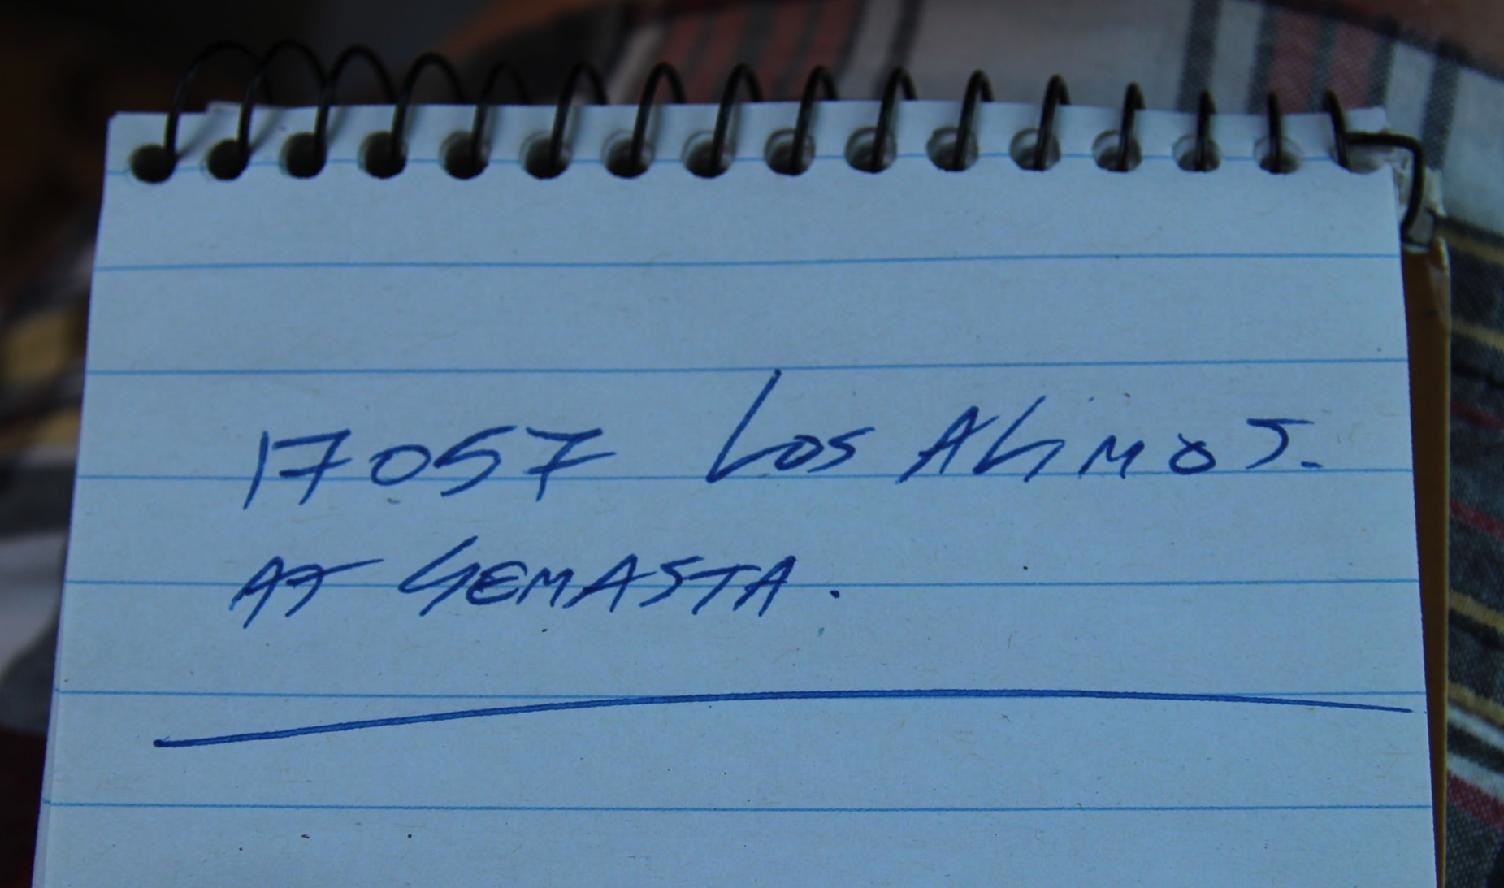 17057 LOS ALIMOS.
AT GEMASTA.